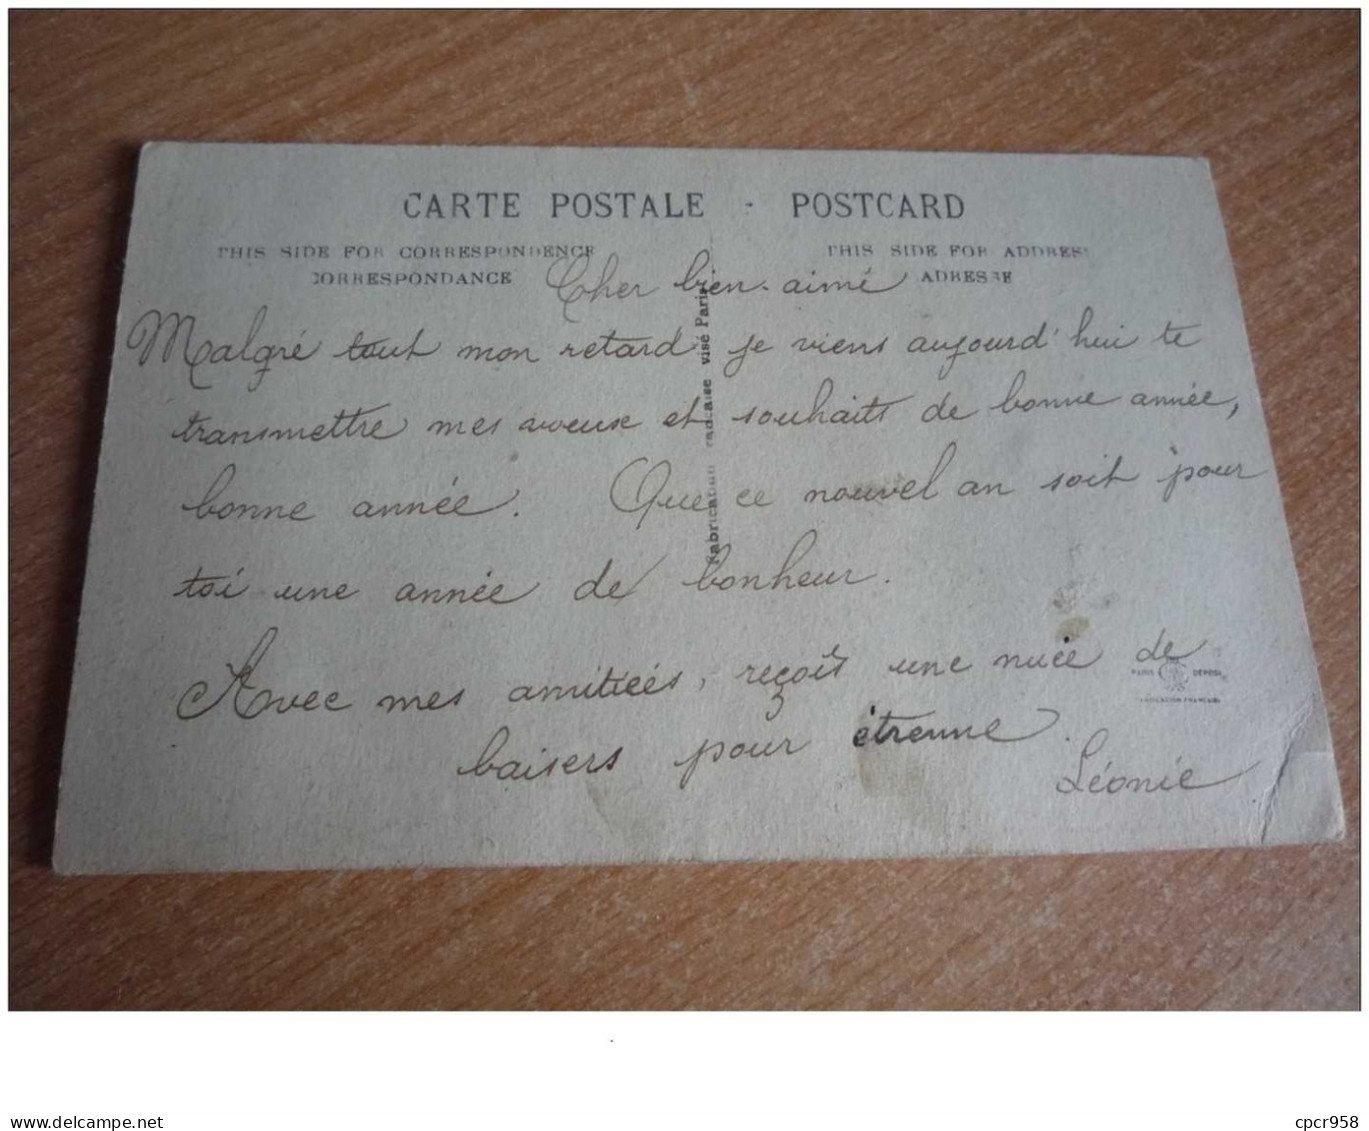 CARTE POSTALE - POSTCARD
THIS SIDE FOR CORRESPONDENCE
CORRESPONDANCE
THIS SIDE FOR ADDRESS
ADRESSE
Cher bien-aimé
Malgré tout mon retard je viens aujourd'hui te
transmettre mes voeux et souhaits de bonne année,
bonne année. Que ce nouvel an soit pour
toi une année de bonheur.
Avec mes amitiées, reçois une nuée de
baisers pour étrenne.
Léonie
Fabrication française visé Paris
PARIS DEPOSE
FABRICATION FRANÇAISE
www.delcampe.net
cpcr958